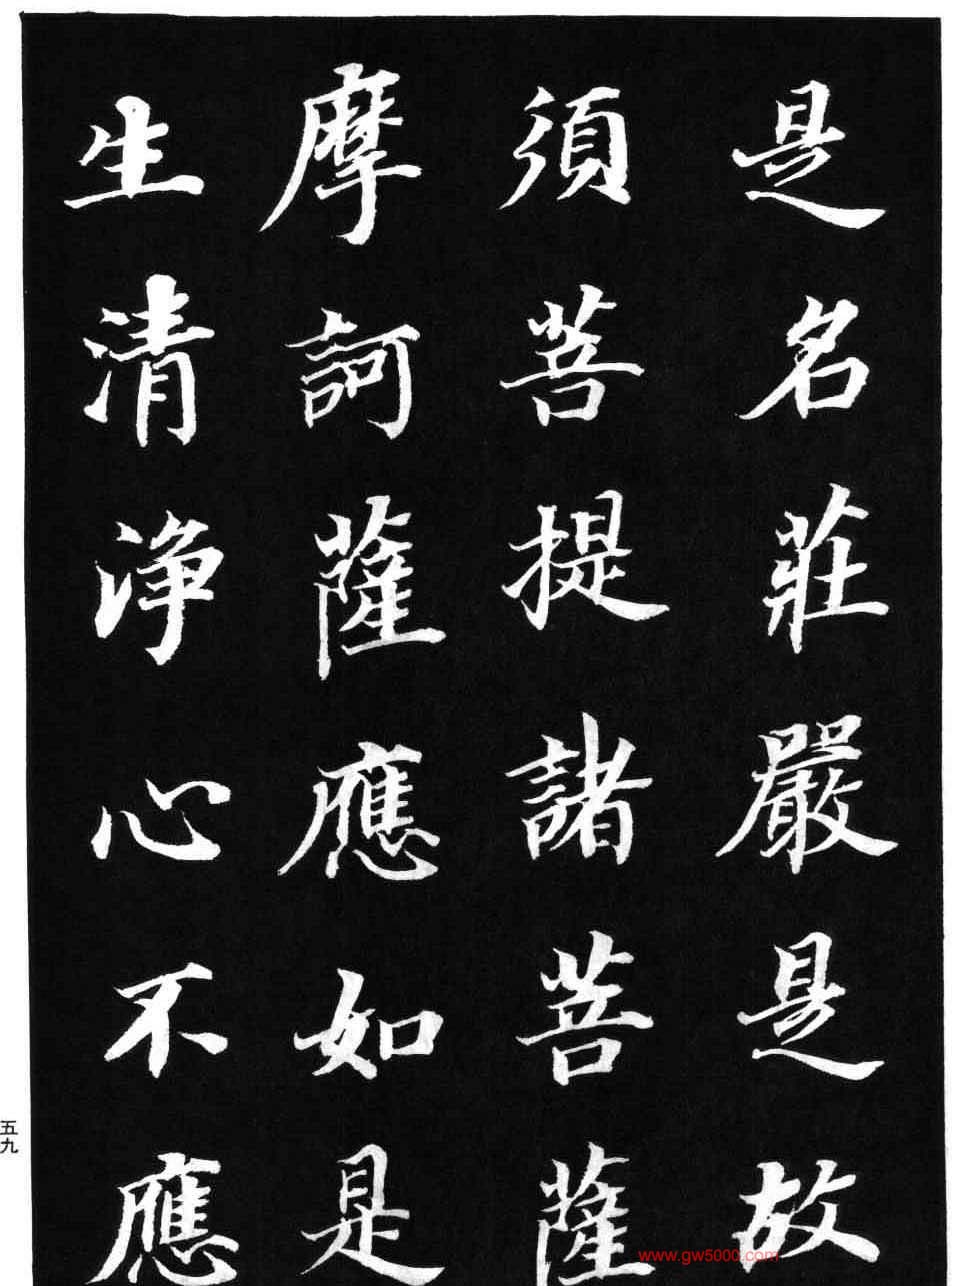 是名莊嚴是故
須菩提諸菩薩
摩訶薩應如是
生清淨心不應
五九
www.gw5000.com